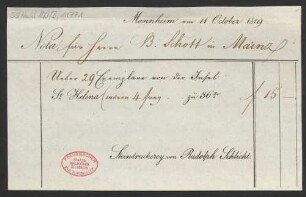 Mannheim am 11 October 1819
Nota, für Herrn B. Schott in Mainz
Ueber 29 Exemplare von der Insel
St Helena zu 36 f 15 —
Steindruckerey von Rudolph Schlicht